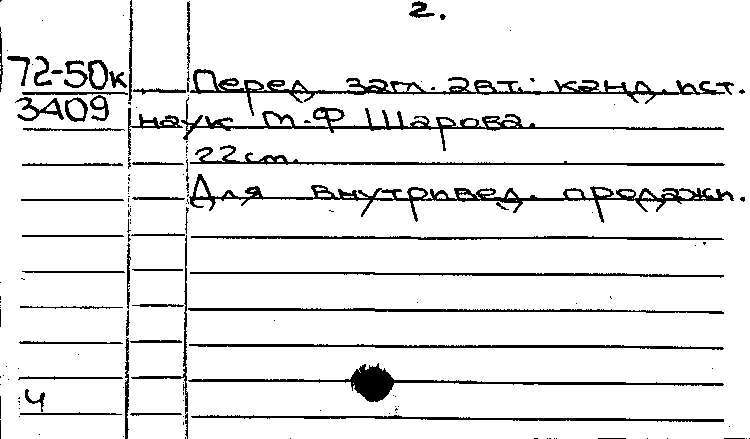 2.
72-50к
3409
Перед загл. авт.: канд. ист.
наук М.Ф Шарова.
22 cm.
Для внутривед. продажи.
ч